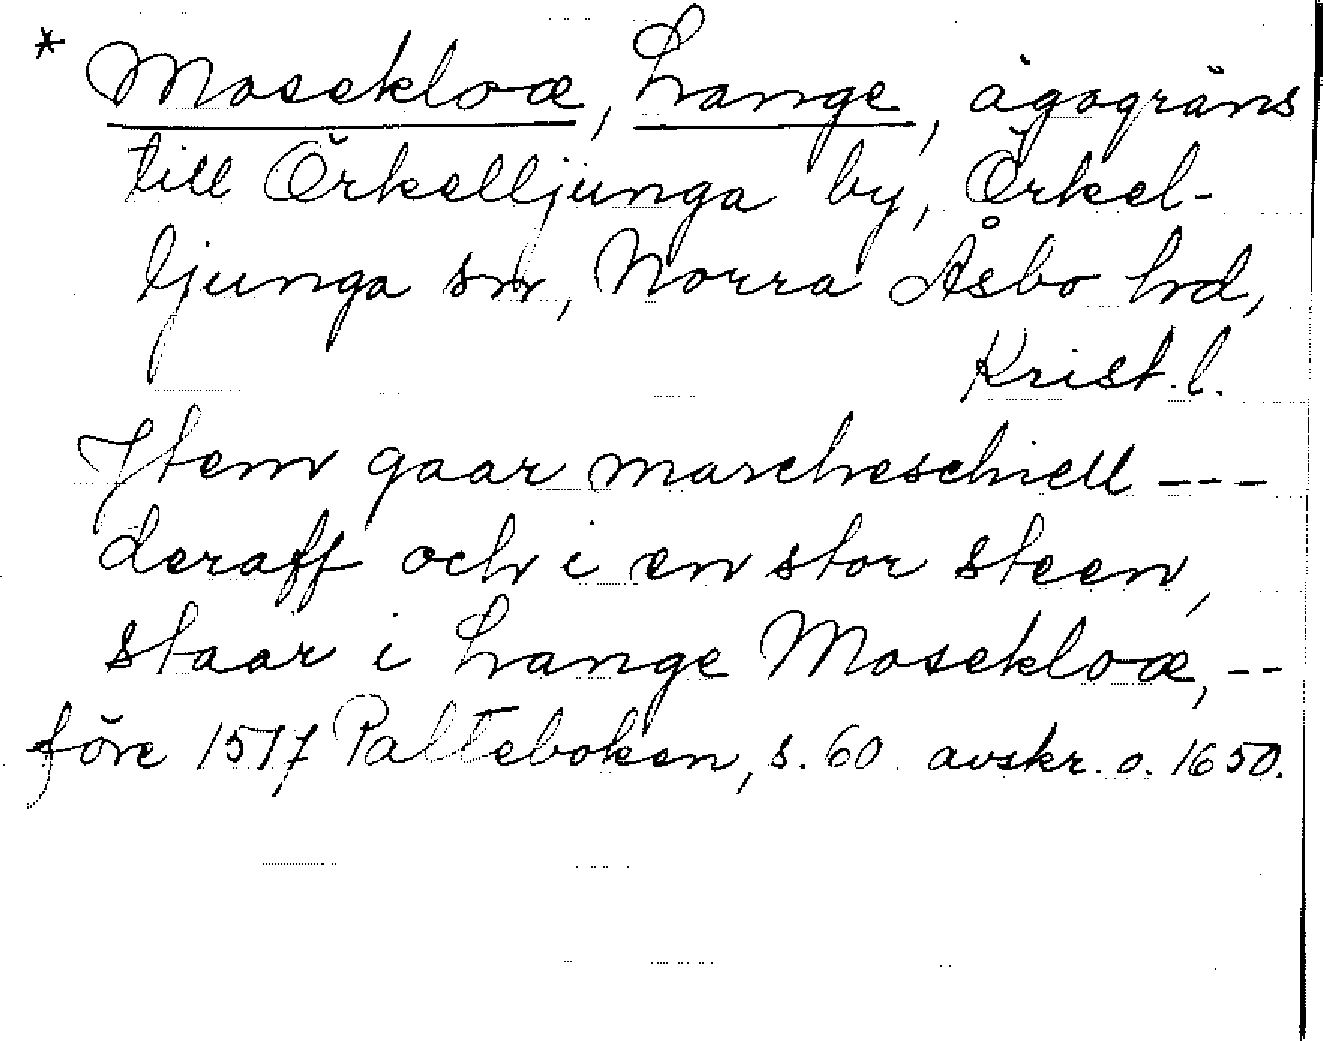 * Mosekloæ, Lange, ägogräns
till Örkelljunga by, Örkel-
ljunga sn, Norra Åsbo hd,
Krist. l.
Jtem gaar marcheschiell ---
deraff och i en stor steen,
staar i Lange Mosekloæ, --
före 1517 Palteboken, s. 60 avskr. o. 1650.